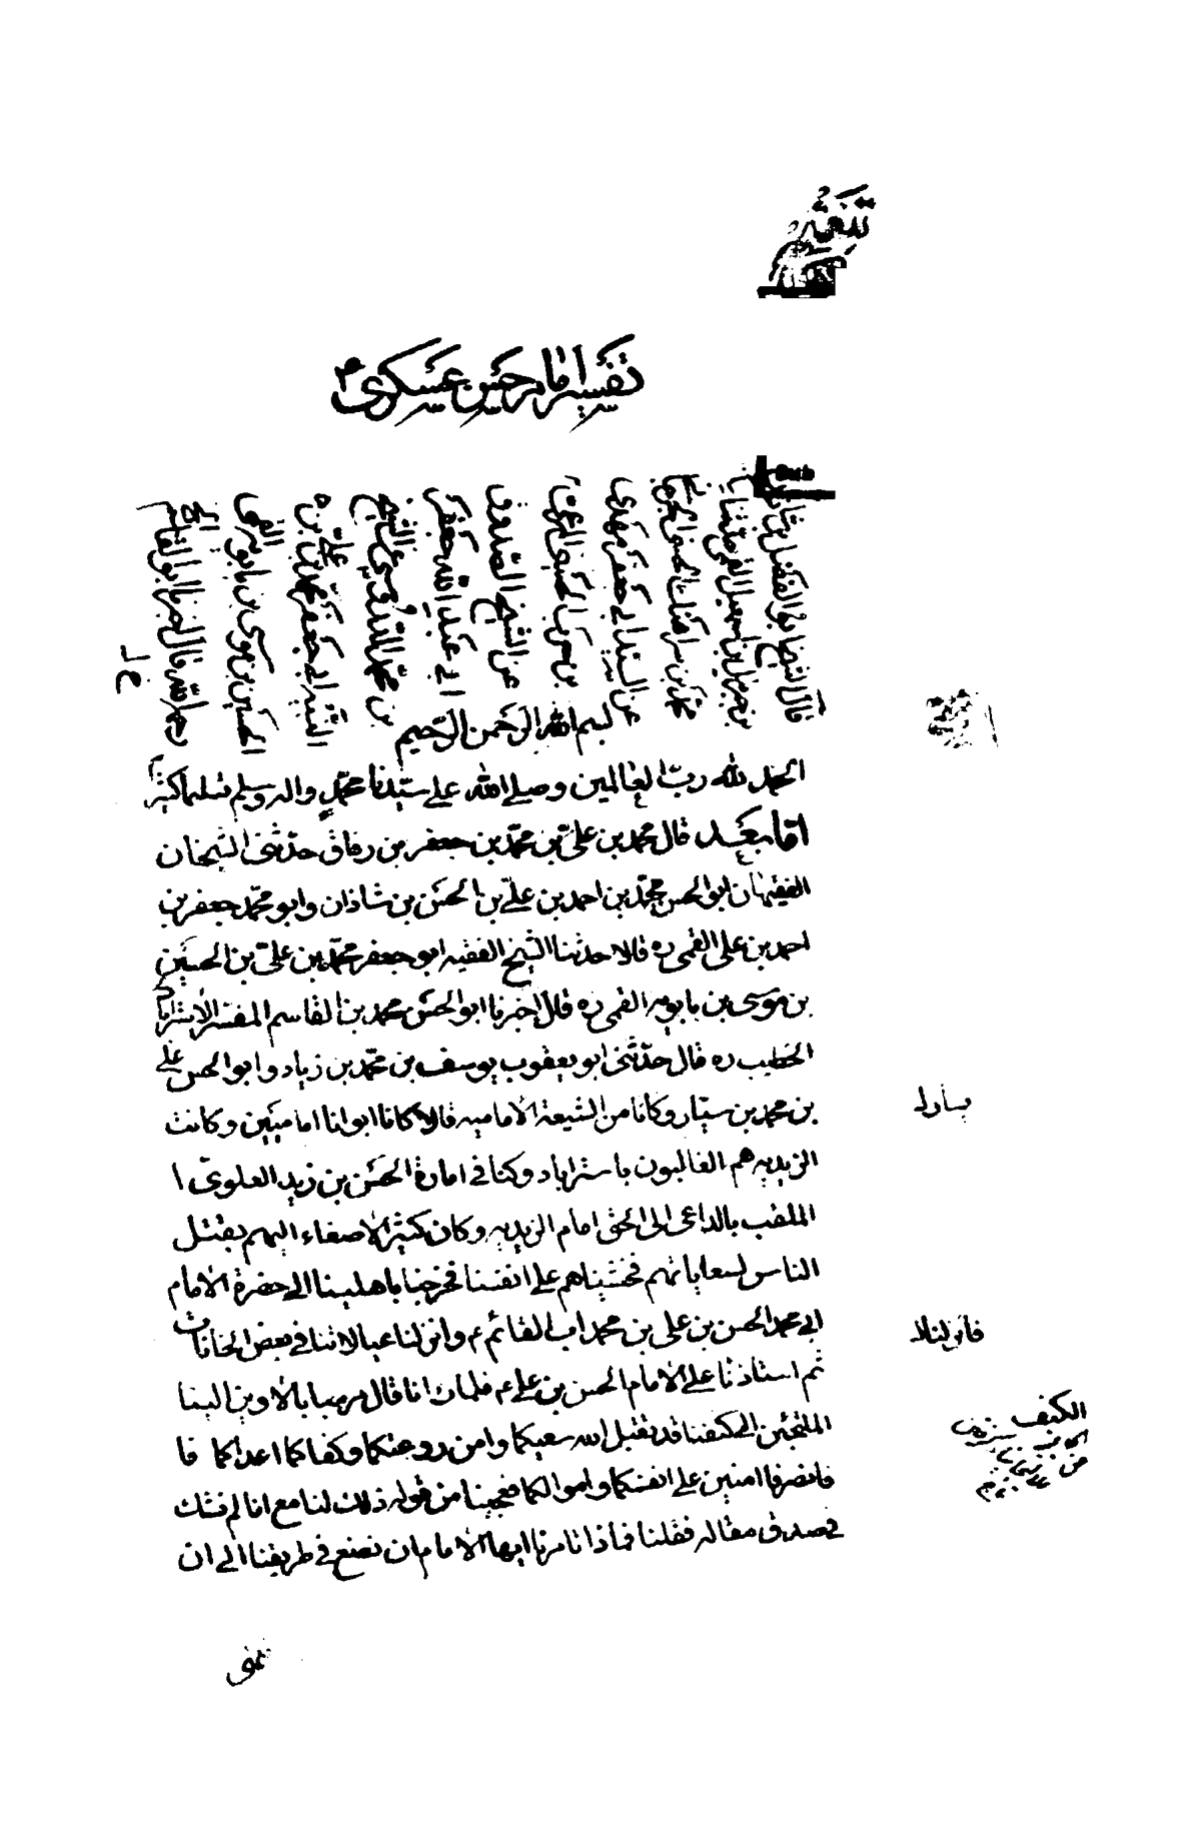 تفسير امام حسن عسكرى ع
قال الشيخ ابو الفضل بن شاذان
بن جبرئيل بن اسمعيل القمى حدثنا
محمد بن سراهنك الحسنى الجرجانى
عن السيد ابى جعفر مهدى
بن حرب الحسينى المرعشى
عن الشيخ الصدوق
ابى عبد الله جعفر
بن محمد الدوريستى عن الشيخ
الفقيه ابى جعفر محمد بن على بن
الحسين بن موسى بن بابويه القمى
رحمه الله قال اخبرنا ابو القاسم
بسم الله الرحمن الرحيم
الحمد لله رب العالمين وصلى الله على سيدنا محمد واله وسلم تسليما كثيرا
اما بعد قال محمد بن على بن محمد بن جعفر بن دقاق حدثنى الشيخان
الفقيهان ابو الحسن محمد بن احمد بن على بن الحسن بن شاذان وابو محمد جعفر بن
احمد بن على القمى ره قالا حدثنا الشيخ الفقيه ابو جعفر محمد بن على بن الحسين
بن موسى بن بابويه القمى ره قال اخبرنا ابو الحسن محمد بن القاسم المفسر الاسترابادى
الخطيب ره قال حدثنى ابو يعقوب يوسف بن محمد بن زياد وابو الحسن على
بن محمد بن سيار وكانا من الشيعة الامامية قالا كانا ابوانا اماميين وكانت
الزيدية هم الغالبون باستراباد وكنا فى امارة الحسن بن زيد العلوى ا
الملقب بالداعى الى الحق امام الزيدية وكان كثير الاصغاء اليهم يقتل
الناس لسعاياتهم فخشيناهم على انفسنا فخرجنا باهلينا الى حضرة الامام
ابى محمد الحسن بن على بن محمد اب القائم ع وانزلنا عيالاتنا فى بعض الخانات
ثم استاذنا على الامام الحسن بن على ع فلما رانا قال مرحبا بالاوين الينا
الملتجئين الى كنفنا قد تقبل الله سعيكما وامن روعتكما وكفاكما اعدائكما فا
فانصرفا امنين على انفسكما واموالكما فعجبنا من قوله ذلك لنا مع انا لم نشك
فى صدق مقاله فقلنا فماذا تامرنا ايها الامام ان نصنع فى طريقنا الى ان
يسار له
فانزلنا
الكنف
ننتهى